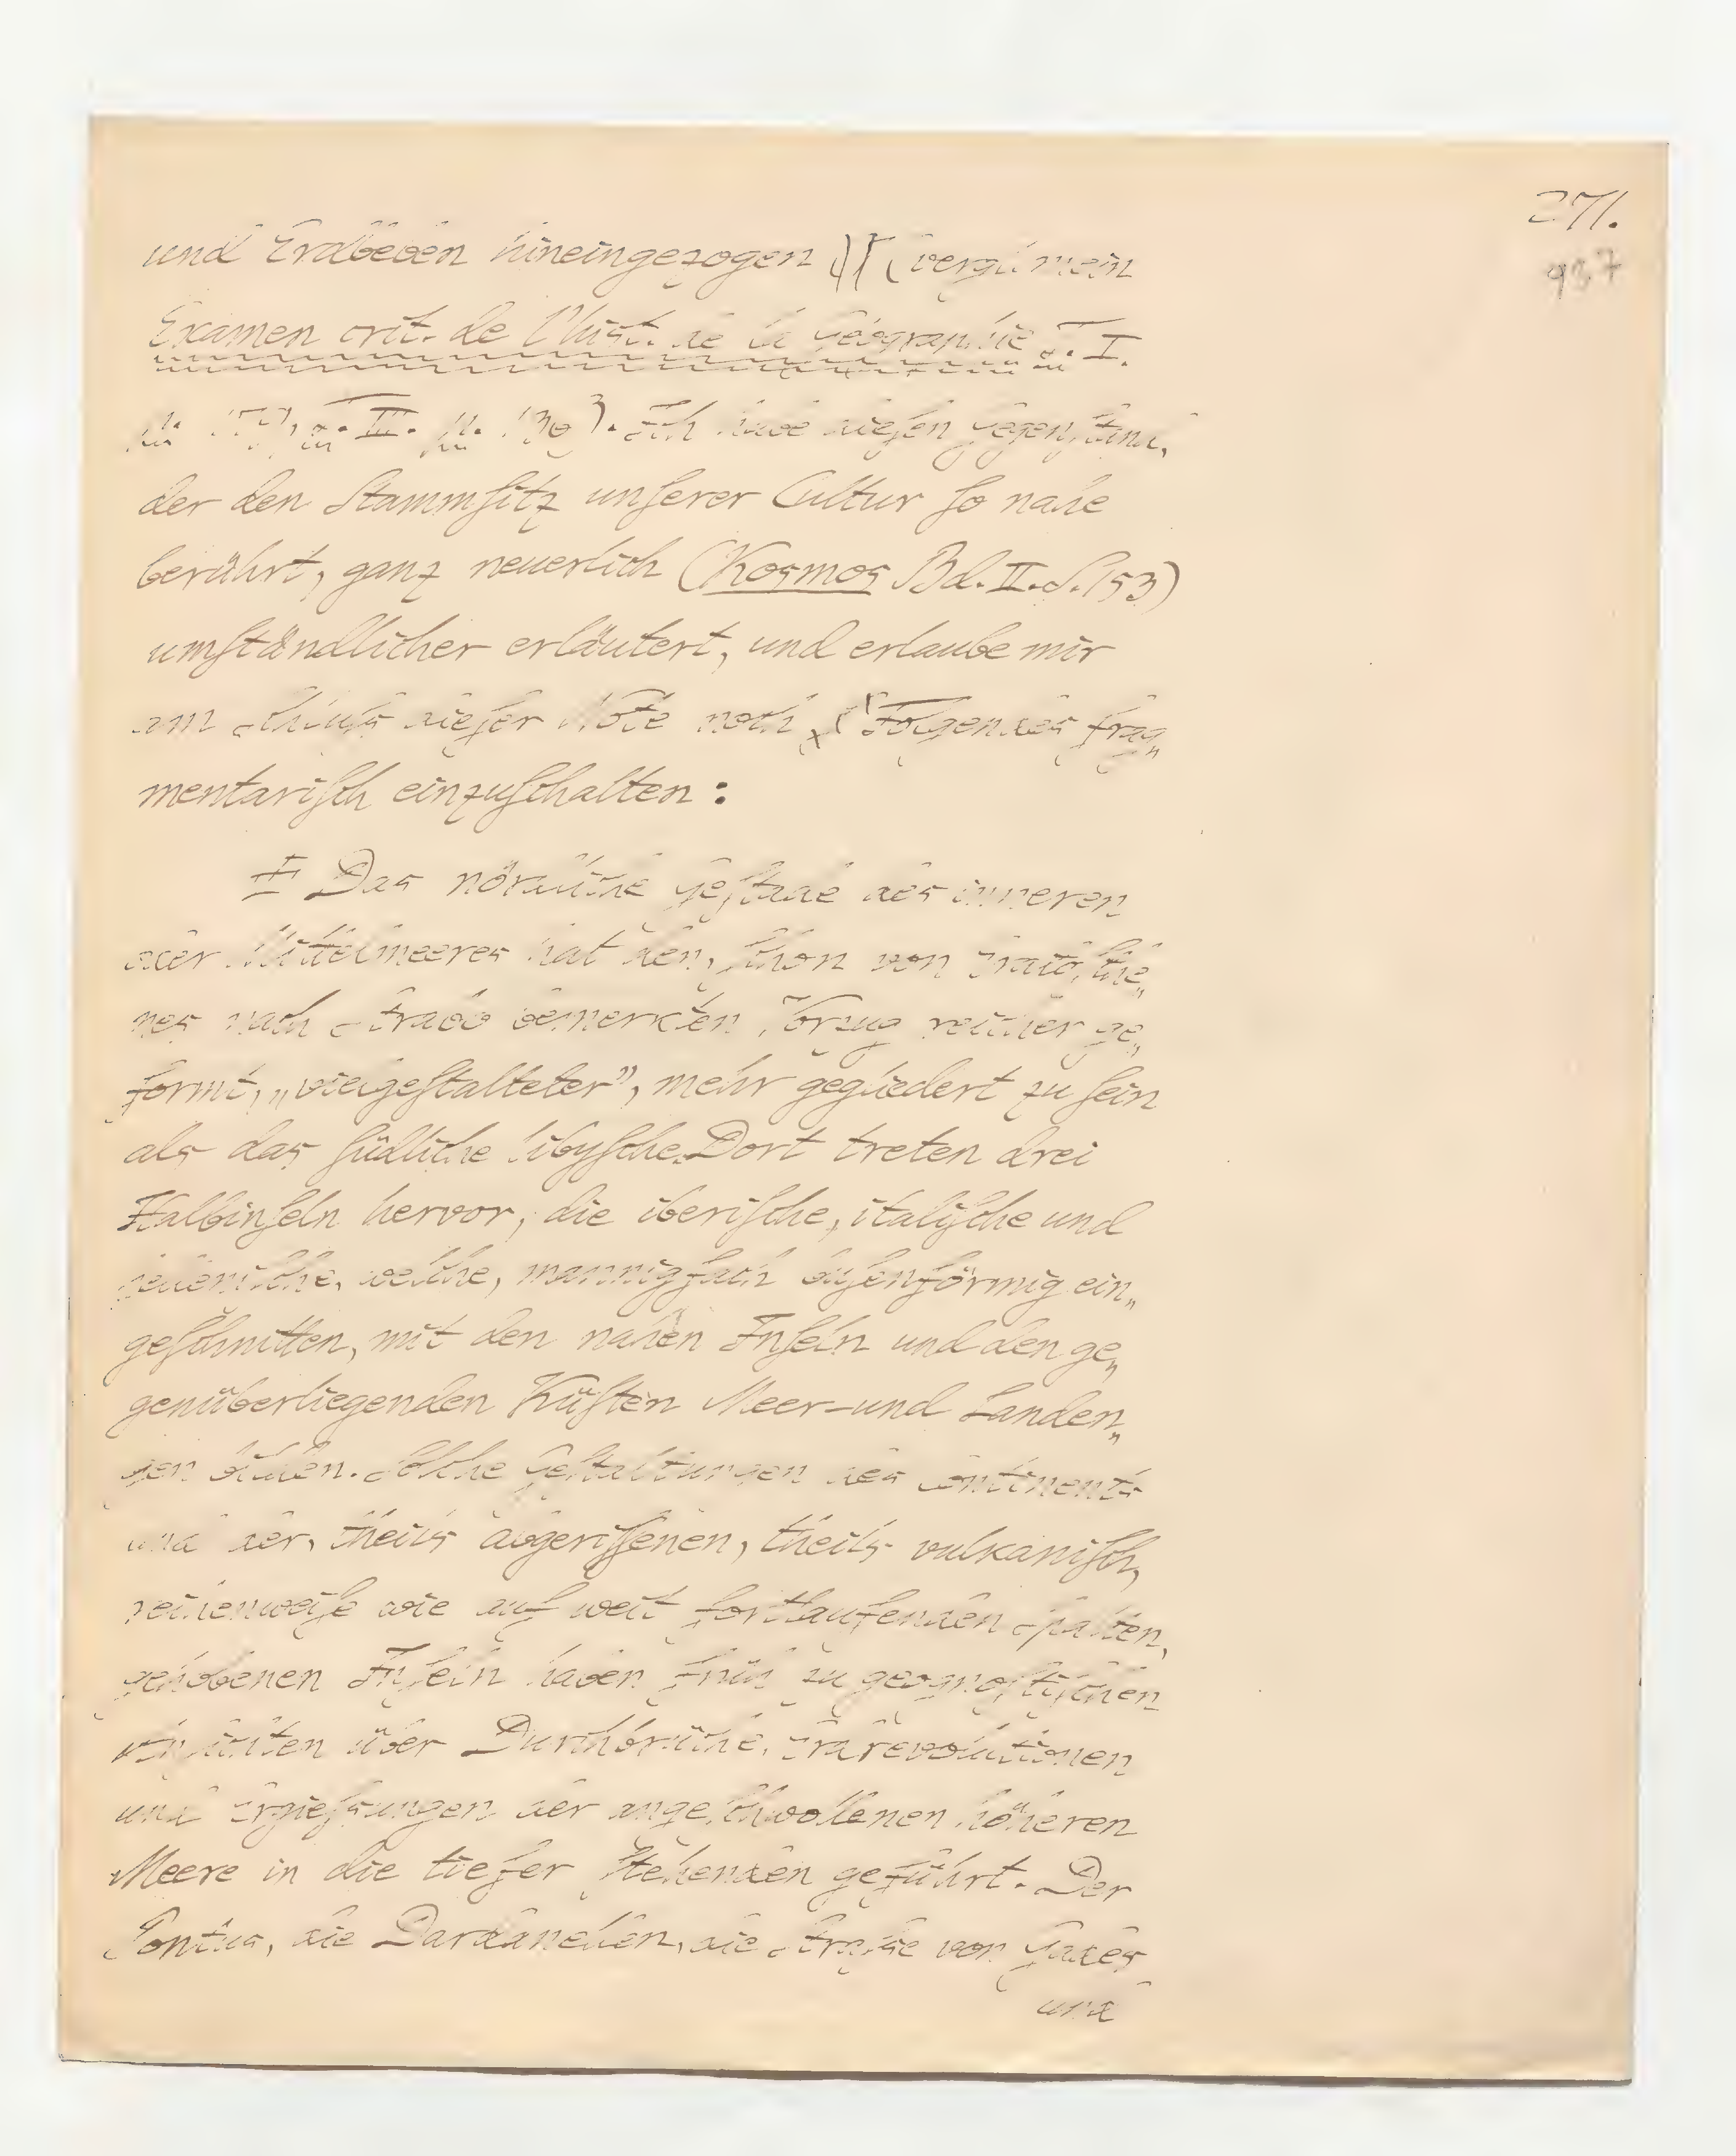 271.
937
und Erdbeben hineingezogen (vergl. mein
Examen crit. de l'hist. de la Géographie T. I.
T. III. p. Ich habe diesen Gegenstand,
der den Stammsitz unserer Cultur so nahe
berührt, ganz neuerlich (Kosmos Bd. II. S. 153)
umständlicher erläutert, und erlaube mir
am Schluß dieser Note noch Folgendes frag„
mentarisch einzuschalten:
Das nördliche Gestade des inneren
oder Mittelmeeres hat den, schon von Eratosthe„
nes nach Strabo bemerkten Vorzug reicher ge„
formt, „vielgestalteter”, mehr gegliedert zu sein
als das südliche libysche. Dort treten drei
Halbinseln hervor, die iberische, italische und
hellenische, welche, mannigfach busenförmig ein„
geschnitten, mit den nahen Inseln und den ge„
genüberliegenden Küsten Meer- und Landen„
gen bilden. Solche Gestaltungen des Continents
und der, theils abgerissenen, theils vulkanisch,
reihenweise wie auf weit fortlaufenden Spalten,
gehobenen Inseln haben früh zu geognostischen
Ansichten über Durchbrüche, Erdrevolutionen
und Ergießungen der angeschwollenen höheren
Meere in die tiefer stehenden geführt. Der
Pontus, die Dardanellen, die Straße von Gades
und